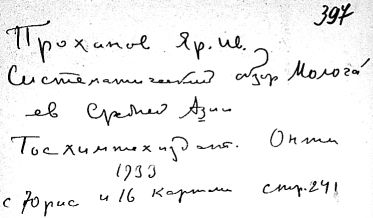 397
Проханов Яр. Ив.
Систематический обзор Молоча
ев Средней Азии
Госхимтехиздат. Онти
1933
с 70 рис и 16 картами стр. 241